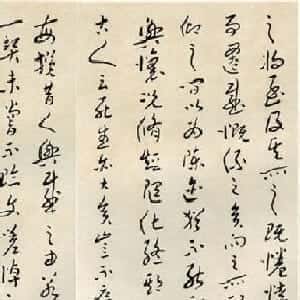 之將至及其所之既惓情
事遷感慨係之矣向之所
仰之間以為陳迹猶不能
興懷況脩短隨化終期
古人云死生亦大矣豈不痛
每攬昔人興感之由若
一契未嘗不臨文嗟悼